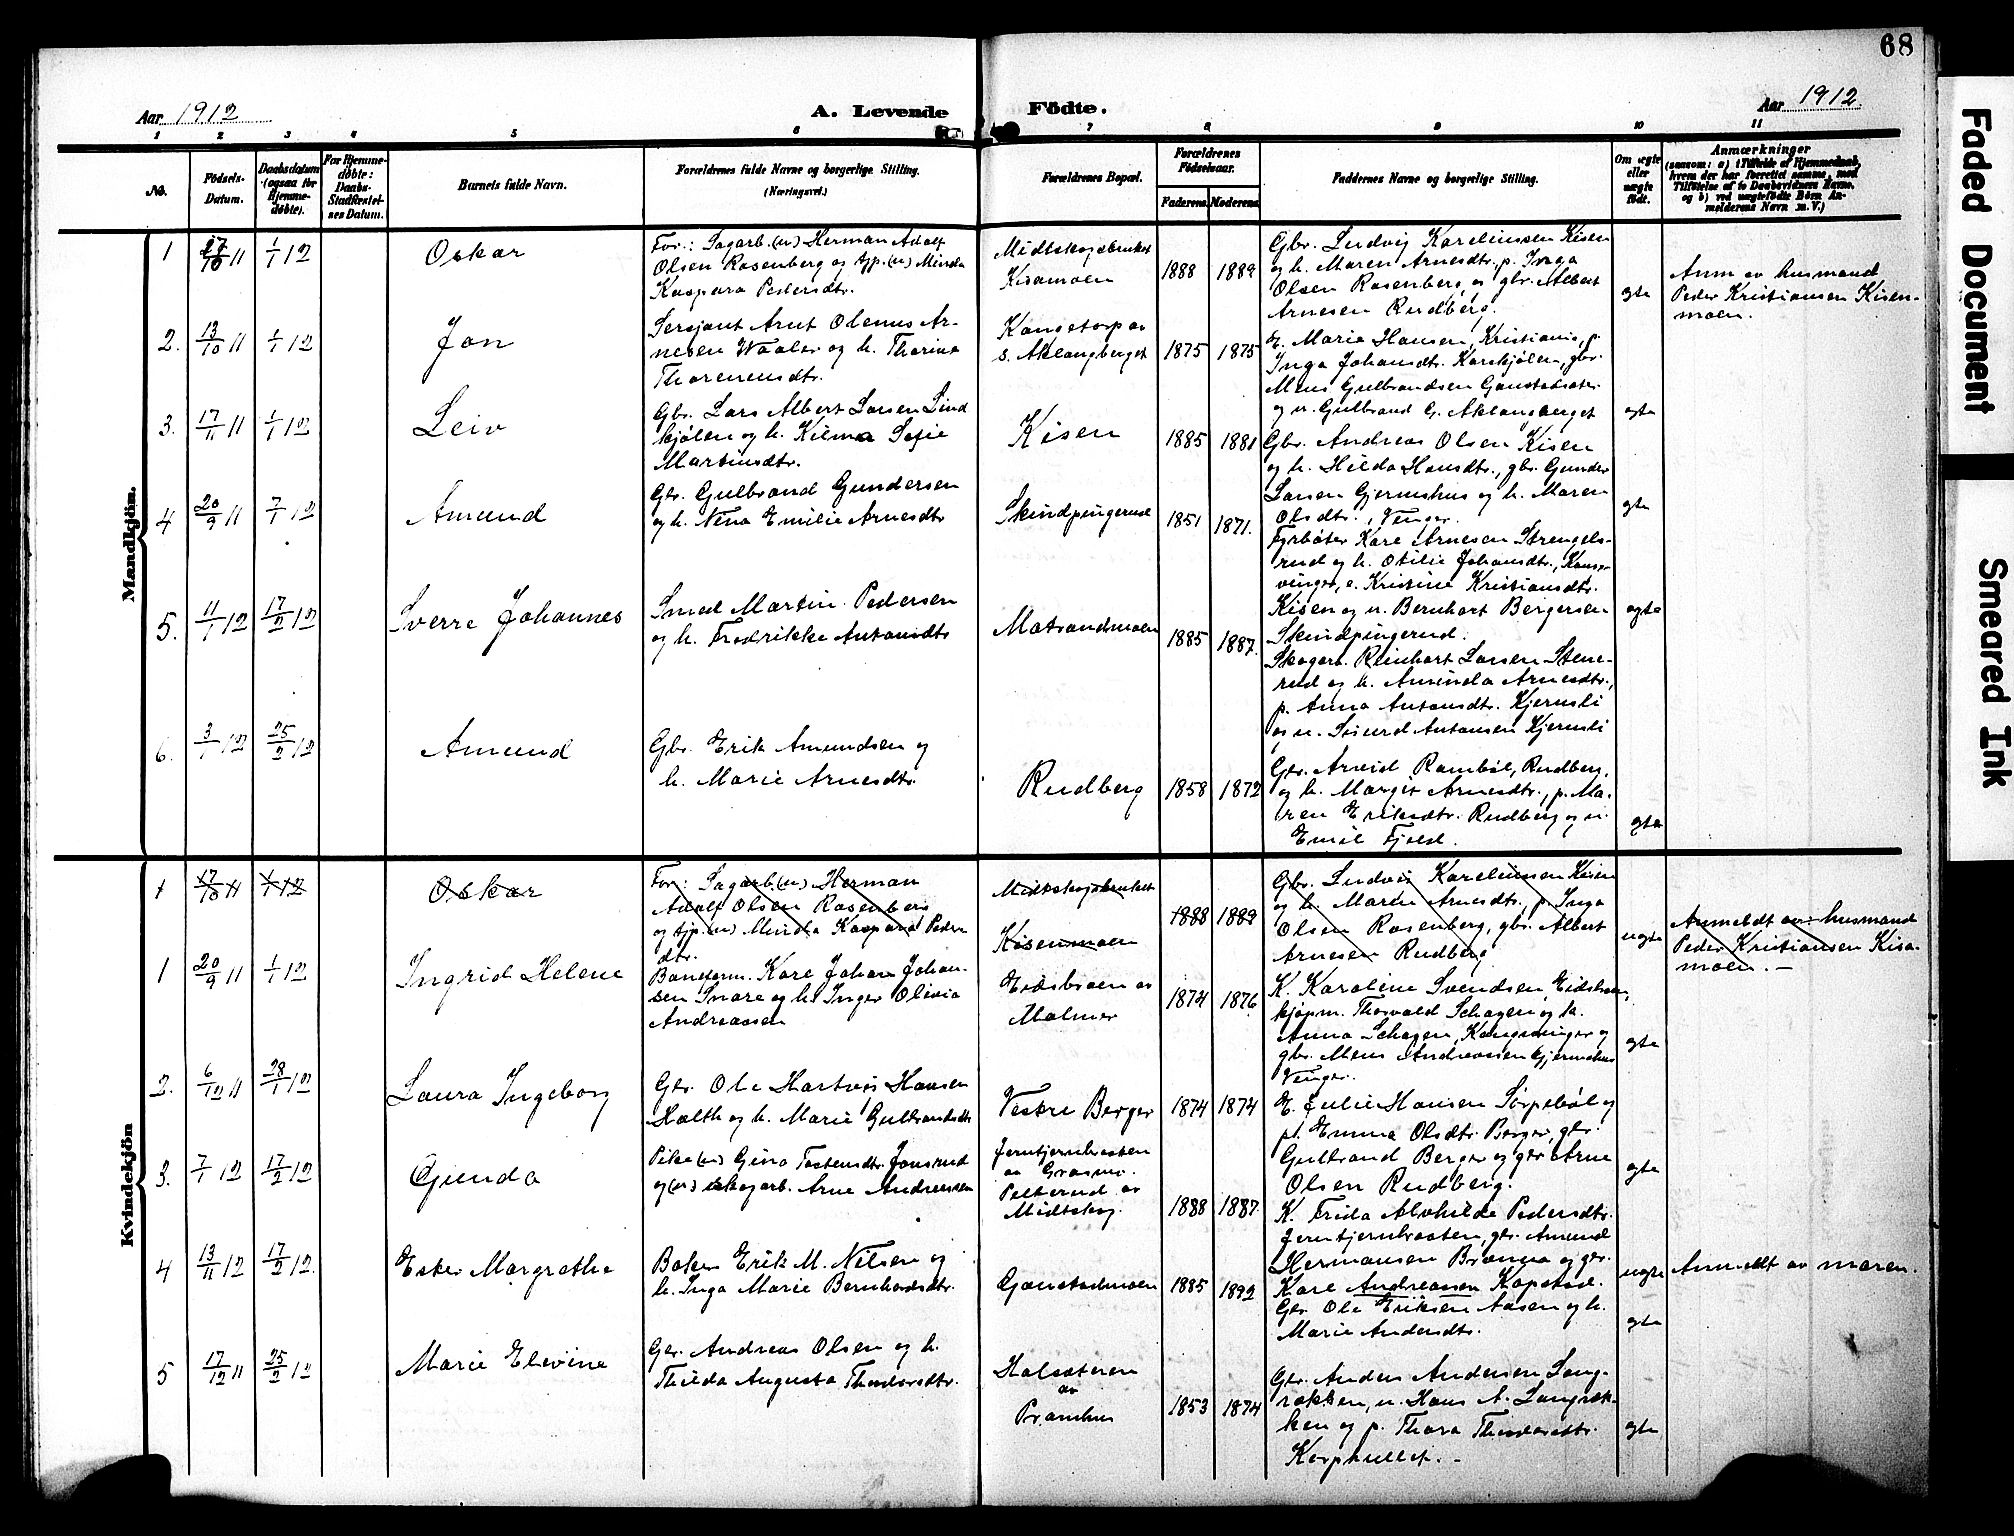 68
Aar 1912
A. Levende
Födte.
Aar 1912.
Faded Document
Smeared Ink
1 2 3 4 5 6 7 8 9 10 11
No.
Födsels-
Datum.
Daabsdatum
(ogsaa for
Hjemme-
döbte).
For Hjemme-
döbte:
Daabs-
Stadfæstel-
ses Datum.
Barnets fulde Navn.
Forældrenes fulde Navne og borgerlige Stilling.
(Næringsvei.)
Forældrenes Bopæl.
Forældrenes
Födselsaar.
Faderens. Moderens.
Faddernes Navne og borgerlige Stilling.
Om ægte
eller
uægte
födt.
Anmærkninger
(saasom: a) i Tilfælde af Hjemmedaab,
hvem der har forrettet samme, med
Tilföielse af to Daabsvidners Navne,
og b) ved uægtefödte Börn An-
melderens Navn m. V.)
Mandkjön.
1 17/10 11 1/1 12 Oskar
For.: Sagarb. (u) Herman Adolf
Olsen Rosenberg og tjp. (u) Minda
Kaspara Pedersdtr.
Midtskogsbruket
Kisamoen
1888 1889
Gbr. Ludvig Kareliussen Kisen
og h. Maren Arnesdtr. p. Inga
Olsen Rosenberg, og gbr. Albert
Arnesen Rudberg.
egte
Anm av husmand
Peder Kristiansen Kisen-
moen.
2. 13/10 11 1/1 12 Jon
Sersjant Arnt Olenus Ar-
nesen Waaler og h. Thorine
s. Aklangberget
1875 1875
E. Marie Hansen, Kristiania, p.
Inga Johansdtr. Karskjölen, gbr.
Mens Gulbrandsen Gaustadsæter
og u. Gulbrand G. Aklangberget
egte
3. 17/11 11 1/1 12 Leiv
Gbr. Lars Albert Larsen Lind
kjölen og h. Kilma Sofie
Martinsdtr.
Kisen
1885 1881
Gbr. Andreas Olsen Kisen
og h. Hilda Hansdtr., gbr. Gunder
Larsen Gjermshus og h. Maren
Olsdtr., Venger.
egte
4 20/9 11 7/1 12 Amund
Gbr. Gulbrand Gundersen
og h. Nena Emilie Arnesdtr
Skindpingerud
1851 1871.
Fyrböter Kare Arnesen Strengels-
rud og h. Otilie Johansdtr., Kongs-
vinger, e. Kristine Kristiansdtr.
Kisen og u. Bernhart Bergersen
Skindpingerud.
egte
5. 11/1 12 17/2 12 Sverre Johannes
Smed Martin Pedersen
og h. Fredrikke Antonsdtr
Matrandsmoen
1885 1887.
Skogarb. Reinhart Larsen Stene-
rud og h. Aminda Arnesdtr.,
p. Anna Antonsdtr. Kjernsli
og u. Sigurd Antonsen Kjernsli
6. 3/1 12 25/2 12 Amund
Gbr. Erik Amundsen og
h. Marie Arnesdtr.
Rudberg
1858 1872
Gbr. Arvid Ramböl, Rudberg,
og h. Margit Arnesdtr., p. Ma-
ren Eriksdtr. Rudberg og u.
Emil Fjeld.
egte
Kvindekjön
1 17/10 11 1/1 12 Oskar
For.: Sagarb. (u) Herman
Adolf Olsen Rosenberg
og tjp. (u) Minda Kaspara Peders
dtr.
Midtskogsbruket
Kisenmoen
1888 1889
Gbr. Ludvig Kareliussen Kisen
og h. Maren Arnesdtr. p. Inga
Olsen Rosenberg, gbr. Albert
Arnesen Rudberg
uegte
Anmeldt av husmand
Peder Kristiansen Kisa-
moen. -
1 20/9 11 1/1 12 Ingrid Helene
Baneform. Kare Johan Johan-
sen Snare og h. Inger Olivia
Andreassen
Eidsbroen av
Malmer
1874 1876
K. Karoline Svendsen, Eidsbroen,
kjøpm. Thorvald Schagen og h.
Anna Schagen, Kongsvinger og
gbr. Mens Andreassen Gjermshus
Venger.
egte
2. 6/12 11 28/1 12 Laura Ingeborg
Gbr. Ole Hartvig Hansen
Holth og h. Marie Gulbrandsdtr
Vestre Berger
1874 1874
E. Julie Hansen Sörpeböl og
p. Emma Olsdtr. Berger, gbr.
Gulbrand Berger og gbr Arne
Olsen Rudberg.
egte
3. 7/1 12 17/2 12 Gunda
Pike (u) Gina Tostensdtr. Jonsrud
og (u) skogarb. Arne Andreassen
Jerntjernbraaten
Pelterud av
Midtskog.
1888 1887
K. Frida Alvhilde Pedersdtr.
Jerntjernbraaten, gbr. Amund
Hermansen Brænna og gbr.
Kare Andreassen Kopstad.
uegte
Anmeldt av moren.
4 13/11 12 17/2 12. Ester Margrethe
Baker Erik M. Nilsen og
h. Inga Marie Bernhardsdtr.
Gaustadmoen
1885 1892
Gbr Ole Eriksen Aasen og h.
Marie Andersdtr.
egte
5 17/12 11 25/2 12 Marie Elevine
Gbr. Andreas Olsen og h.
Thilda Augusta Theodorsdtr.
Holsæteren
av
Pramhus
1853 1874
Gbr. Anders Andersen Lang-
rækken, u. Hans A. Langræk-
ken og p. Thora Theodorsdtr.
Korphullet. -
egte